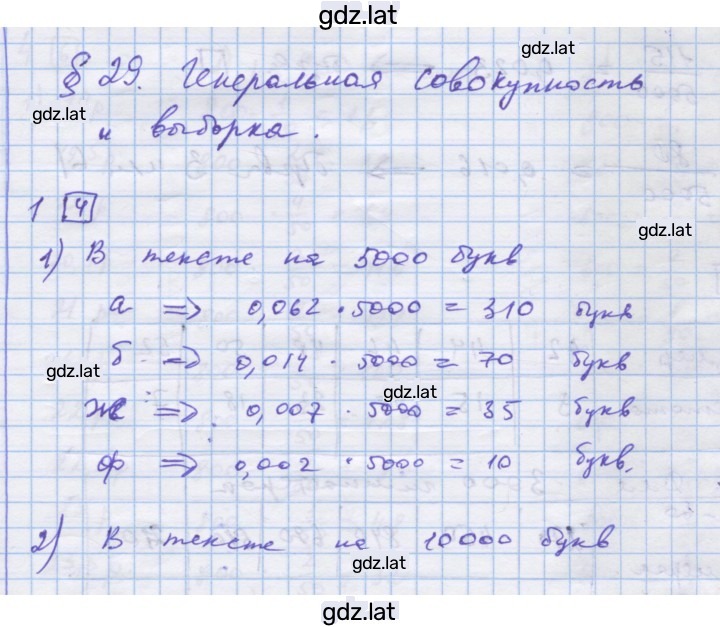 gdz.lat
gdz.lat
§ 29. Генеральная совокупность
gdz.lat
и выборка.
1 4
gdz.lat
1) В тексте на 5000 букв
а => 0,062 · 5000 = 310 букв
б => 0,014 · 5000 = 70 букв
gdz.lat
gdz.lat
ж => 0,007 · 5000 = 35 букв
ф => 0,002 · 5000 = 10 букв.
2) В тексте на 10000 букв
gdz.lat
gdz.lat